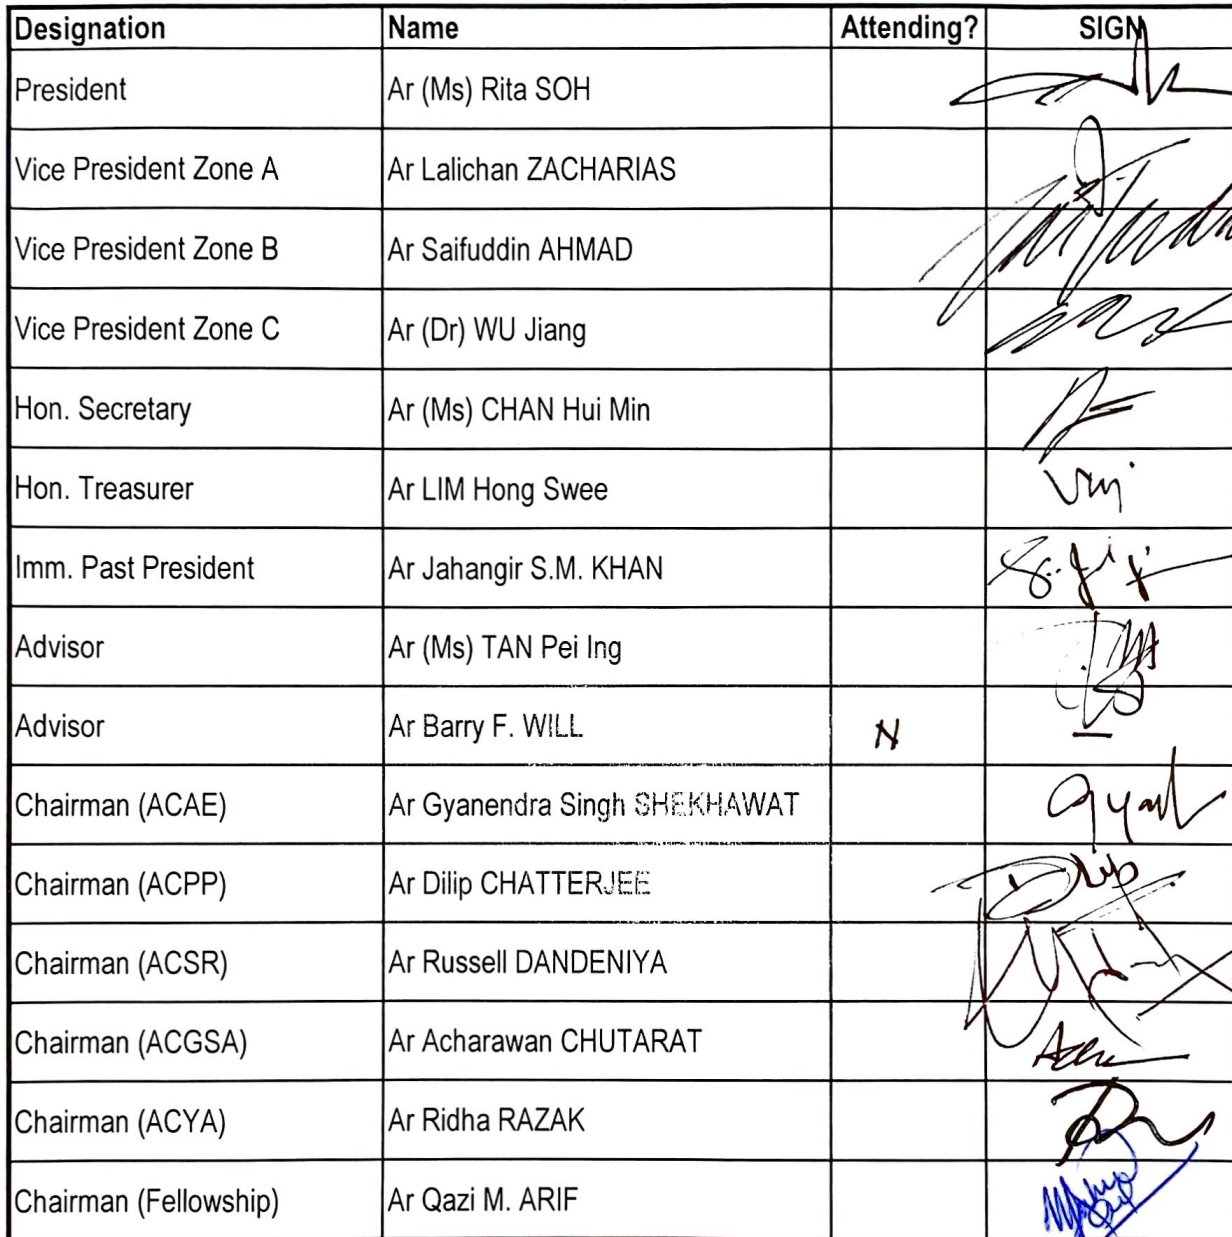 Designation Name Attending? SIGN
President Ar (Ms) Rita SOH
Vice President Zone A Ar Lalichan ZACHARIAS
Vice President Zone B Ar Saifuddin AHMAD
Vice President Zone C Ar (Dr) WU Jiang
Hon. Secretary Ar (Ms) CHAN Hui Min
Hon. Treasurer Ar LIM Hong Swee
Imm. Past President Ar Jahangir S.M. KHAN
Advisor Ar (Ms) TAN Pei Ing
Advisor Ar Barry F. WILL N
Chairman (ACAE) Ar Gyanendra Singh SHEKHAWAT
Chairman (ACPP) Ar Dilip CHATTERJEE Dilip
Chairman (ACSR) Ar Russell DANDENIYA
Chairman (ACGSA) Ar Acharawan CHUTARAT
Chairman (ACYA) Ar Ridha RAZAK
Chairman (Fellowship) Ar Qazi M. ARIF